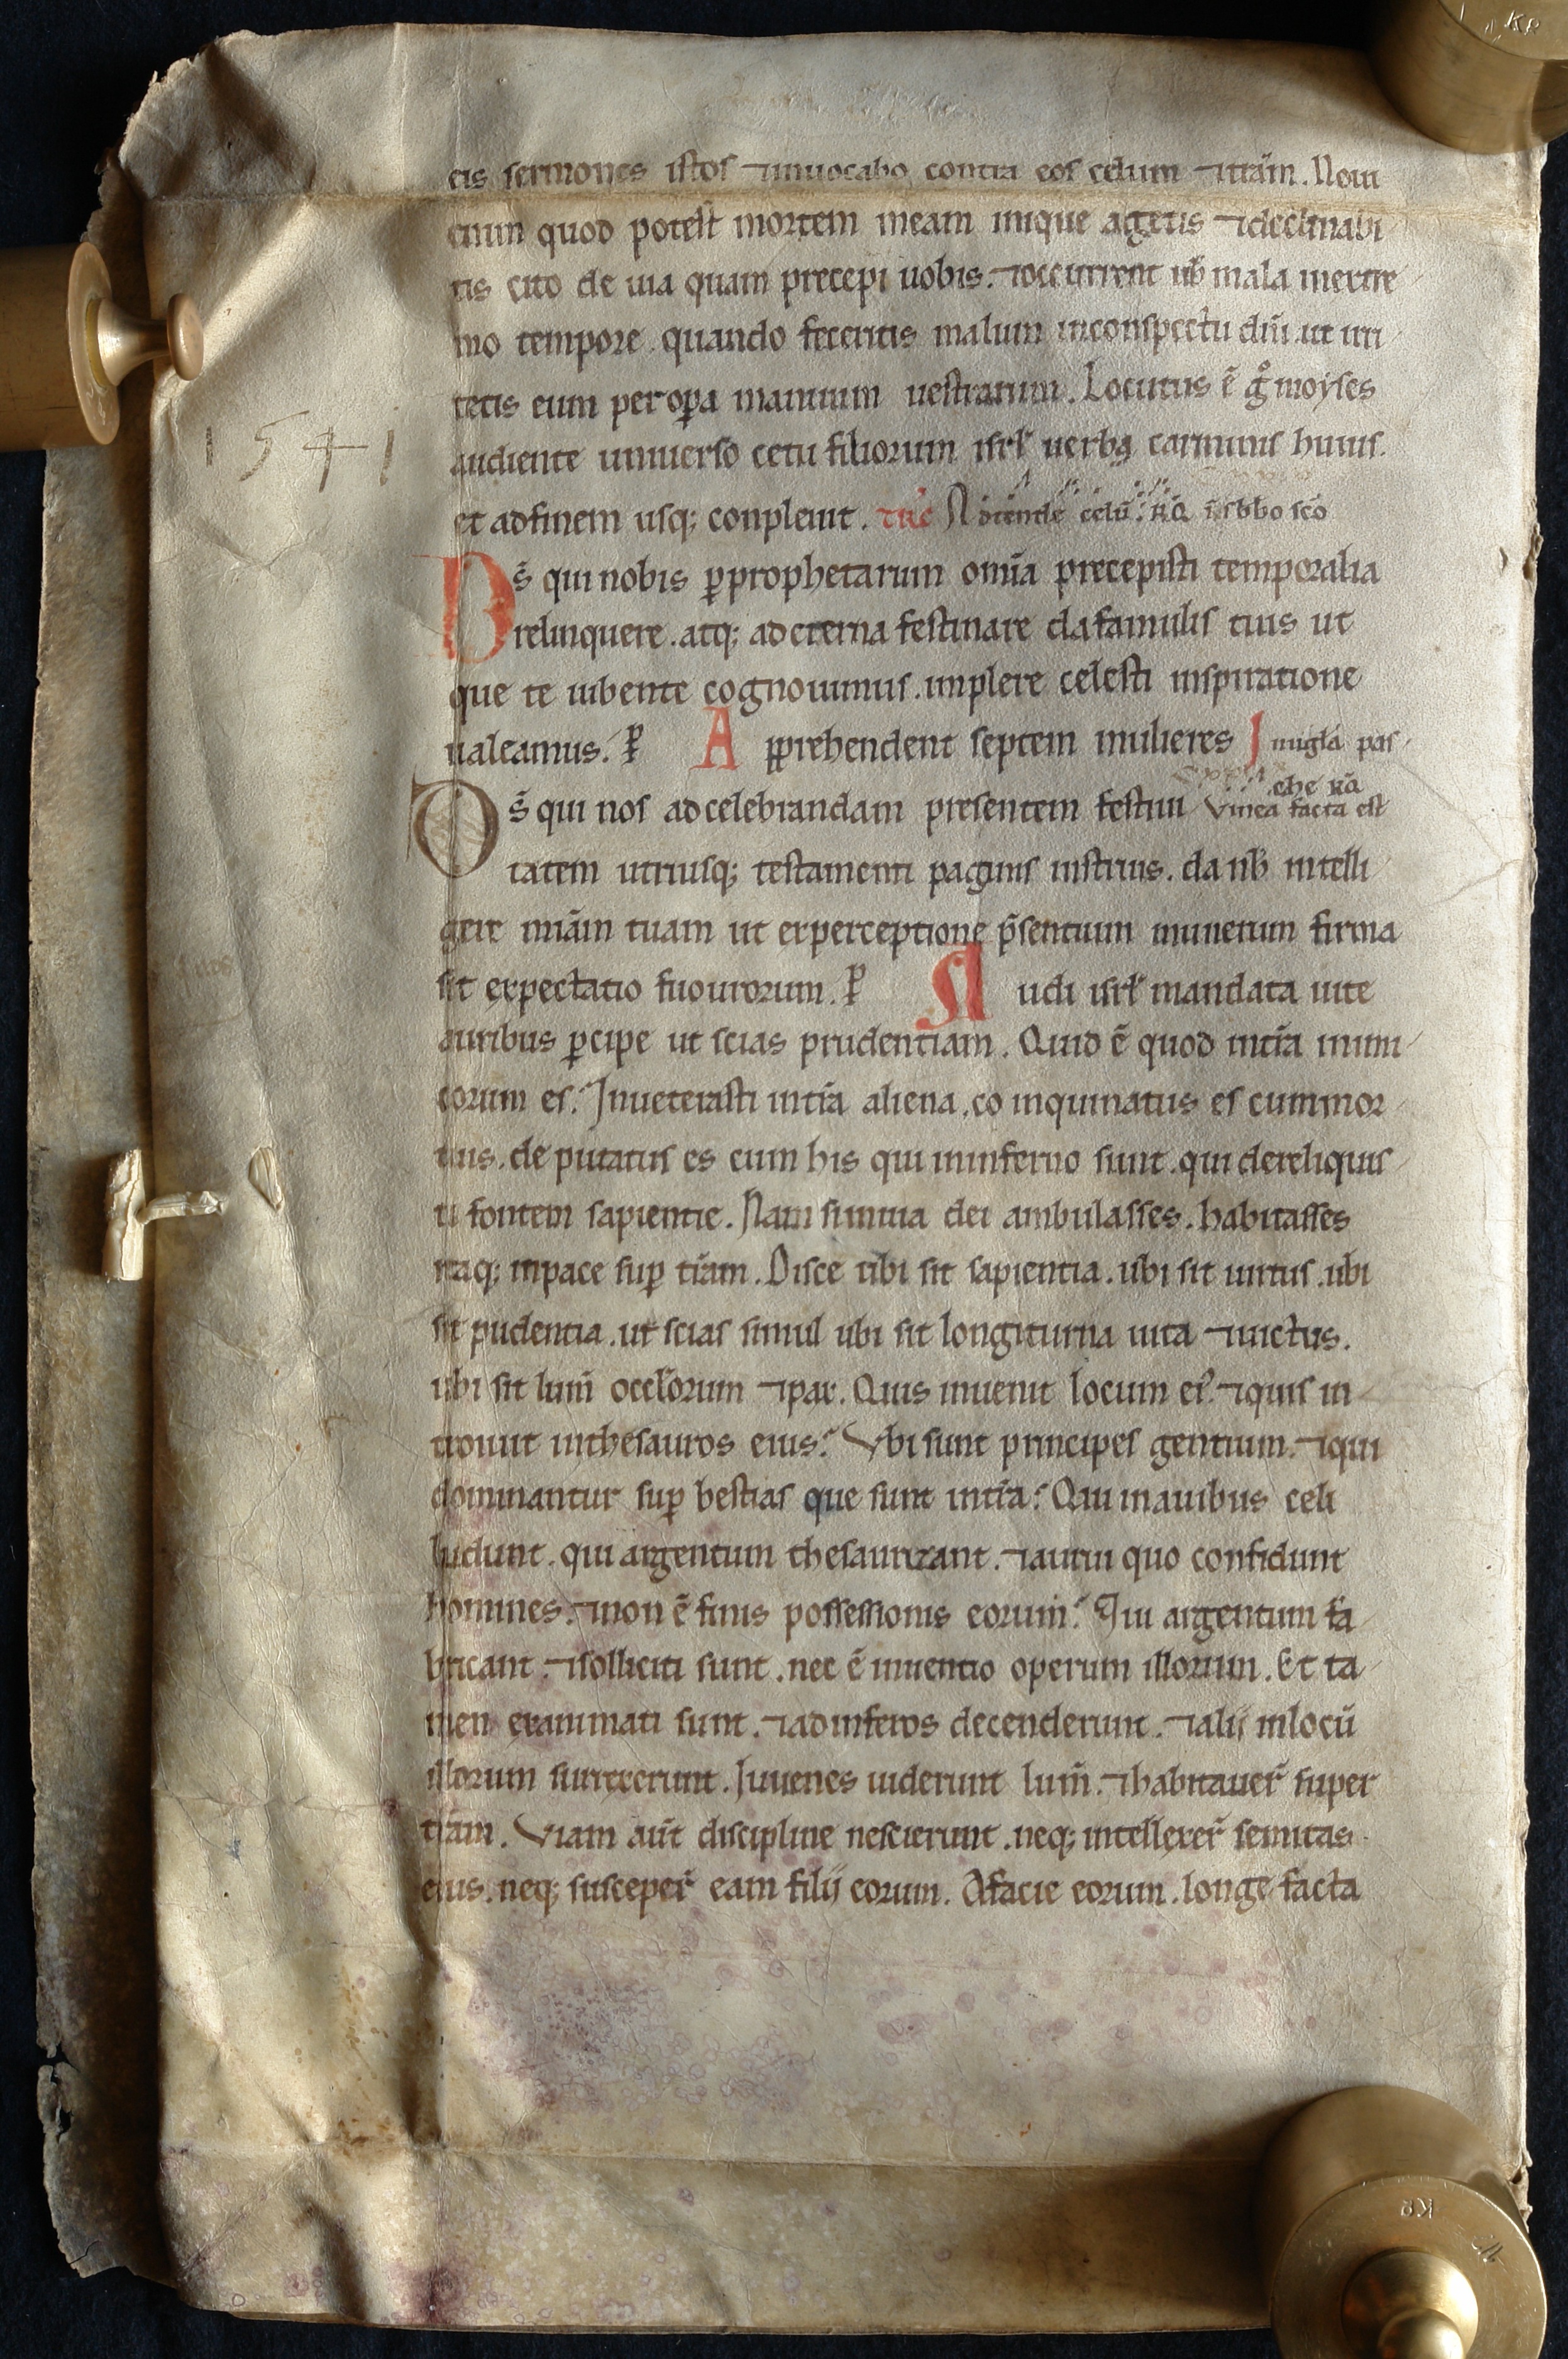 eis sermones istos ⁊inuocabo contra eos celum ⁊trām. Noui
enim quod potest mortem meam inique agetis ⁊declinabi
tis cito de uia quam precepi uobis. ⁊occurrent uƀ mala inextre
mo tempore quando feceritis malum inconspectu dnī ut irri
tetis eum per oꝑa manuum uestrarum. Locutus ē gͦ moyses
audiente uniuerso cetu filiorum isrł uerba carminis huius.
et adfinem usq; conpleuit. Attende celū. in sabbo sc̄o
D s̄ qui nobis ꝑprophetarum omīa precepisti temporalia
relinquere. atq; adeterna festinare dafamulis tuis ut
que te iubente cognouimus. implere celesti inspiratione
ualeamus. ꝑ A pprehendent septem mulieres I nuigła pas
che
D s̄ qui nos adcelebrandam presentem festiui Vinea facta est
tatem utriusq; testamenti paginis instruis. da nƀ intelli
gere mīam tuam ut experceptione p̄sentium munerum firma
sit expectatio fuourorum. ꝑ A udi isrł mandata uite
auribus ꝑcipe ut scias prudentiam. Quid ē quod intīa inimi
corum es. Inueterasti intīa aliena. co inquinatus es cummor
tuis. de putatus es cum his qui ininferno sunt. qui dereliquis
ti fontem sapientie. Nam siinuia dei ambulasses. habitasses
itaq; inpace suꝑ trām. Disce ubi sit sapientia. ubi sit uirtus. ubi
sit pudentia. ut scias simul ubi sit longiturna uita ⁊uictus.
ubi sit lum̄ oculorum ⁊pax. Quis inuenit locum ei᷒ ⁊quis in
trouit inthesauros eius. Vbi sunt principes gentium. ⁊qui
dominantur suꝑ bestias que sunt intīa. Qui inauibus celi
ludunt. qui argentum thesaurizant. ⁊aurū quo confidunt
homines. ⁊non ē finis possessionis eorum. Qui argentum fa
bricant. ⁊solliciti sunt. nec ē inuentio operum illorum. Et ta
men exanimati sunt. ⁊adinferos decenderunt. ⁊alij inlocū
illorum surrexerunt. Iuuenes uiderunt lum̄. ⁊habitauer̄ super
trām. Viam aūt discipline nescierunt. neq; intellexer̄ semitas
eius. neq; susceper̄ eam filij eorum. Afacie eorum. longe facta
1541